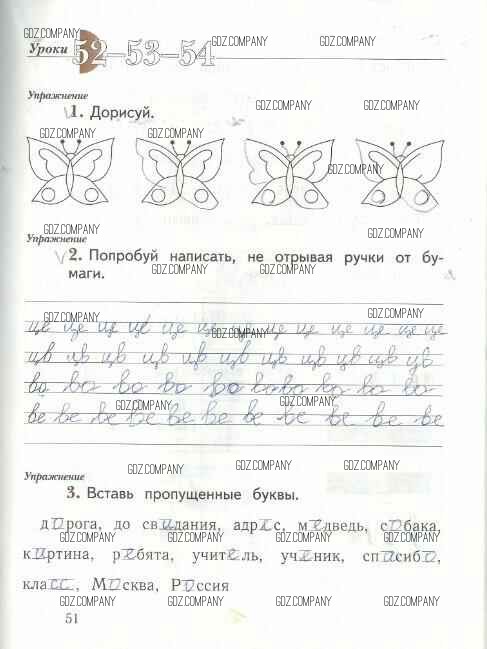 GDZ.COMPANY
Уроки 52–53–54 GDZ.COMPANY GDZ.COMPANY
Упражнение
1. Дорисуй. GDZ.COMPANY GDZ.COMPANY
GDZ.COMPANY GDZ.COMPANY GDZ.COMPANY
GDZ.COMPANY
GDZ.COMPANY
Упражнение
2. Попробуй написать, не отрывая ручки от бу-
маги. GDZ.COMPANY GDZ.COMPANY
GDZ.COMPANY GDZ.COMPANY
це це це це це це це це це це це
GDZ.COMPANY
цв цв цв цв цв цв цв цв цв цв цв
во во во во во во во во во во
GDZ.COMPANY GDZ.COMPANY
ве ве ве ве ве ве ве ве ве ве ве
GDZ.COMPANY GDZ.COMPANY GDZ.COMPANY
Упражнение
3. Вставь пропущенные буквы.
GDZ.COMPANY GDZ.COMPANY GDZ.COMPANY
дорога, до свидания, адрес, медведь, собака,
картина, ребята, учитель, ученик, спасибо,
класс, Москва, Россия
GDZ.COMPANY GDZ.COMPANY GDZ.COMPANY GDZ.COMPANY
51